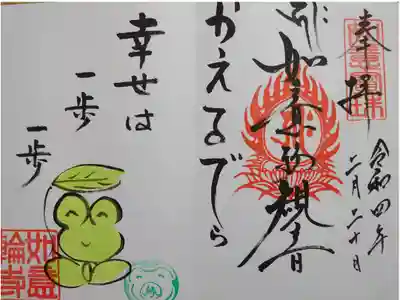 奉拝
令和四年
二月二十日
如意輪観音
かえるでら
幸せは
一歩
一歩
如意
輪寺